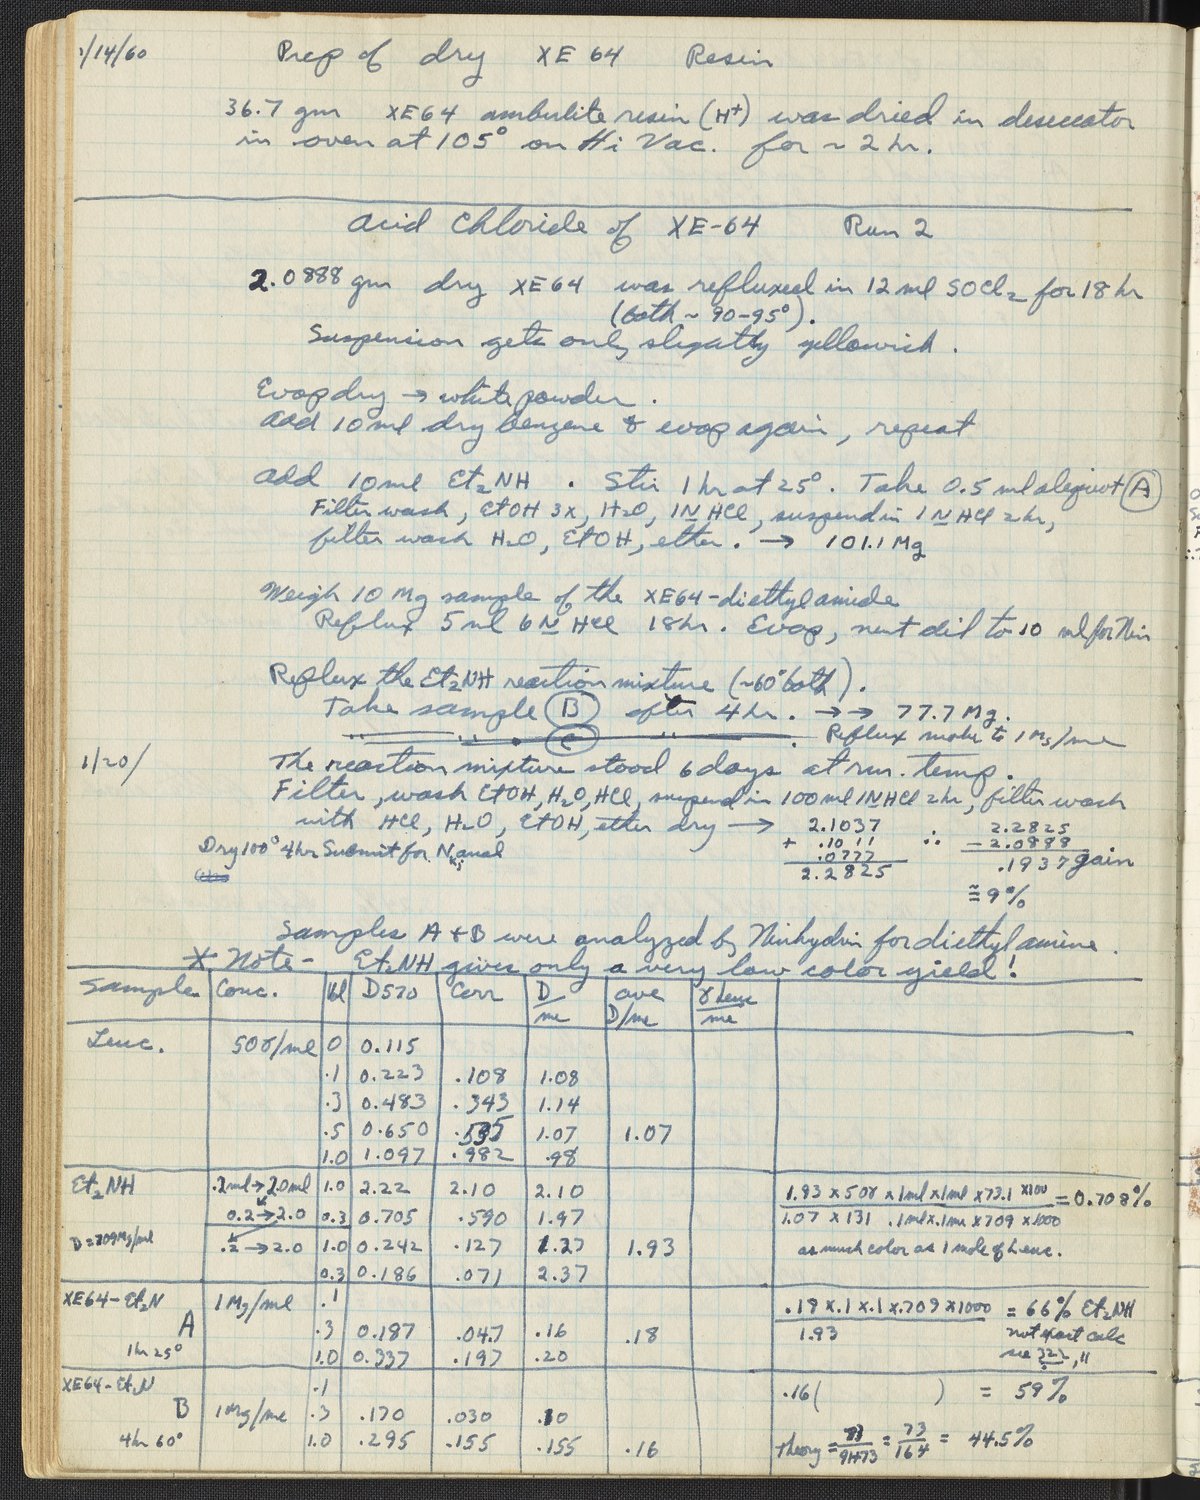 1/14/60 Prep of dry XE 64 Resin
36.7 gm XE64 amberlite resin (H+) was dried in desiccator
in oven at 105° on Hi Vac. for ~ 2 hr.
Acid Chloride of XE-64 Run 2
2.0888 gm dry XE64 was refluxed in 12 ml SOCl2 for 18 hr
(bath ~ 90-95°).
Suspension gets only slightly yellowish.
Evap dry → white powder.
Add 10 ml dry benzene & evap again, repeat
Add 10 ml Et2NH. Stir 1 hr at 25°. Take 0.5 ml aliquot (A)
Filter wash, EtOH 3x, H2O, 1N HCl, suspend in 1N HCl 2hr,
filter wash H2O, EtOH, ether. → 101.1 Mg
Weigh 10 Mg sample of the XE64-diethylamide
Reflux 5 ml 6N HCl 18hr. Evap, neut dil to 10 ml for Nin
Reflux the Et2NH reaction mixture (~60° bath).
Take sample (B) after 4 hr. →→ 77.7 Mg.
" " (C) " . Reflux make to 1 Mg/ml
1/20/ The reaction mixture stood 6 days at rm. temp.
Filter, wash EtOH, H2O, HCl, suspend in 100 ml 1N HCl 2hr, filter wash
with HCl, H2O, EtOH, ether dry → 2.1037 ∴ 2.2825
+ .1011 - 2.0888
.0777 .1937 gain
2.2825
≅ 9%
Dry 100° 4hr Submit for N anal
Samples A + B were analyzed by Ninhydrin for diethylamine.
* Note - Et2NH gives only a very low color yield!
Sample Conc. Vol D570 Corr D/ml ave D/ml γ Leuc/ml
Leuc. 50γ/ml 0 0.115
.1 0.223 .108 1.08
.3 0.483 .343 1.14
.5 0.650 .535 1.07 1.07
1.0 1.097 .982 .98
Et2NH .2ml→20ml 1.0 2.22 2.10 2.10 1.93 x 50γ x 1ml x 1ml x 73.1 x100 = 0.708%
0.2→2.0 0.3 0.705 .590 1.97 1.07 x 131 .1ml x .1ml x 709 x 1000
D=709Mg/ml .2→2.0 1.0 0.242 .127 1.27 1.93 as much color as 1 mole of Leuc.
0.3 0.186 .071 2.37
XE64-Et2N 1 Mg/ml .1 .18 x .1 x .1 x .709 x 1000 = 66% Et2NH
A .3 0.187 .047 .16 .18 1.93 not exact calc
1hr 25° 1.0 0.337 .197 .20 see 322, 11
XE64-Et2N .1 .16 ( ) = 59%
B 1Mg/ml .3 .170 .030 .10
4hr 60° 1.0 .295 .155 .155 .16 theory = 73/91+73 = 73/164 = 44.5%